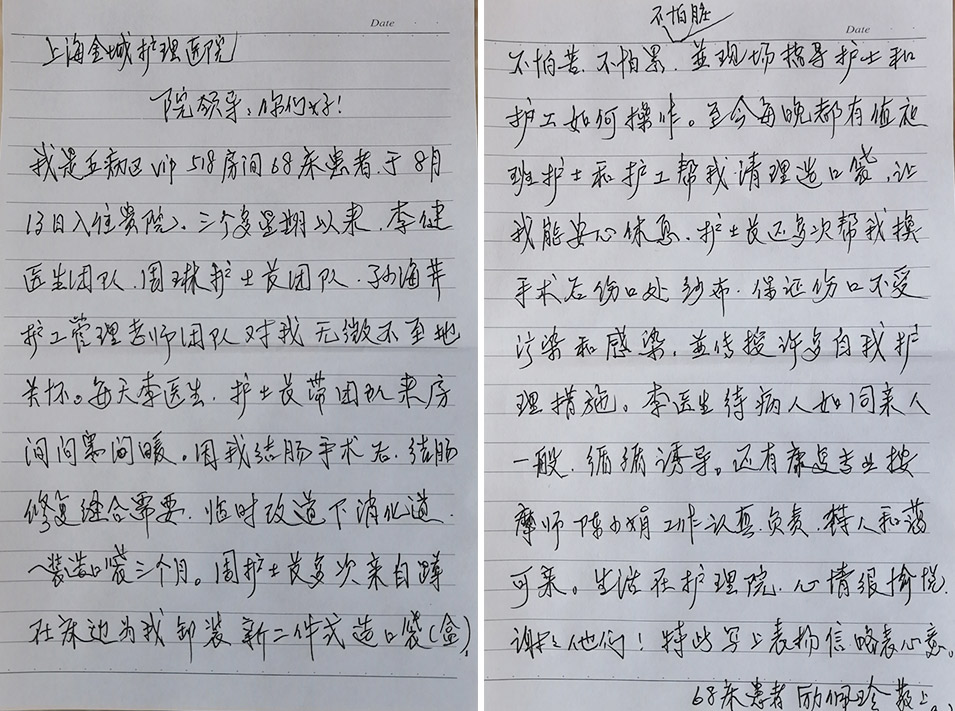 Date
上海金城护理医院
院领导：你们好！
我是五病区vip 518房间68床患者，于8月
13日入住贵院、三个多星期以来，李健
医生团队、周琳护士长团队、孙海萍
护工管理老师团队对我无微不至地
关怀。每天李医生、护士长带团队来房
间问寒问暖。因我结肠手术后，结肠
修复缝合需要，临时改道下消化道，
安装造口袋三个月。周护士长多次亲自蹲
在床边为我卸装新二件式造口袋（盒），
Date
不怕脏
不怕苦、不怕累，並现场指导护士和
护工如何操作。至今每晚都有值夜
班护士和护工帮我清理造口袋，让
我能安心休息，护士长还多次帮我换
手术后伤口处纱布，保证伤口不受
污染和感染，並传授许多自我护
理措施。李医生待病人如同亲人
一般，循循诱导。还有康复专业按
摩师陈小娟工作认真负责，待人和蔼
可亲。生活在护理院，心情很愉悦，
谢谢他们！特此写上表扬信，略表心意。
68床患者 励佩珍 敬上